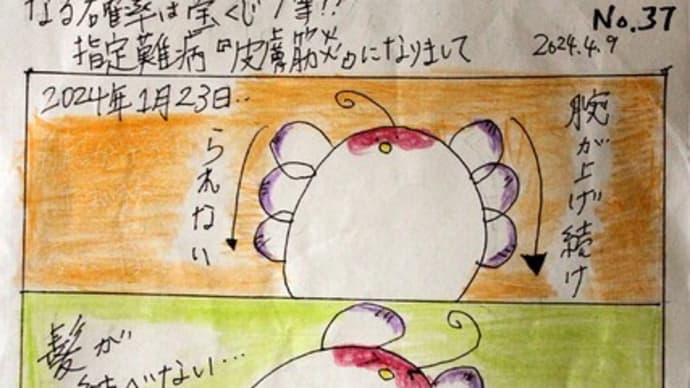 なる確率は宝くじ1等!!
No.37
指定難病『皮膚筋炎』になりまして
2024.4.9
2024年1月23日..
腕が上げ続け
られない
髪が
結べない…